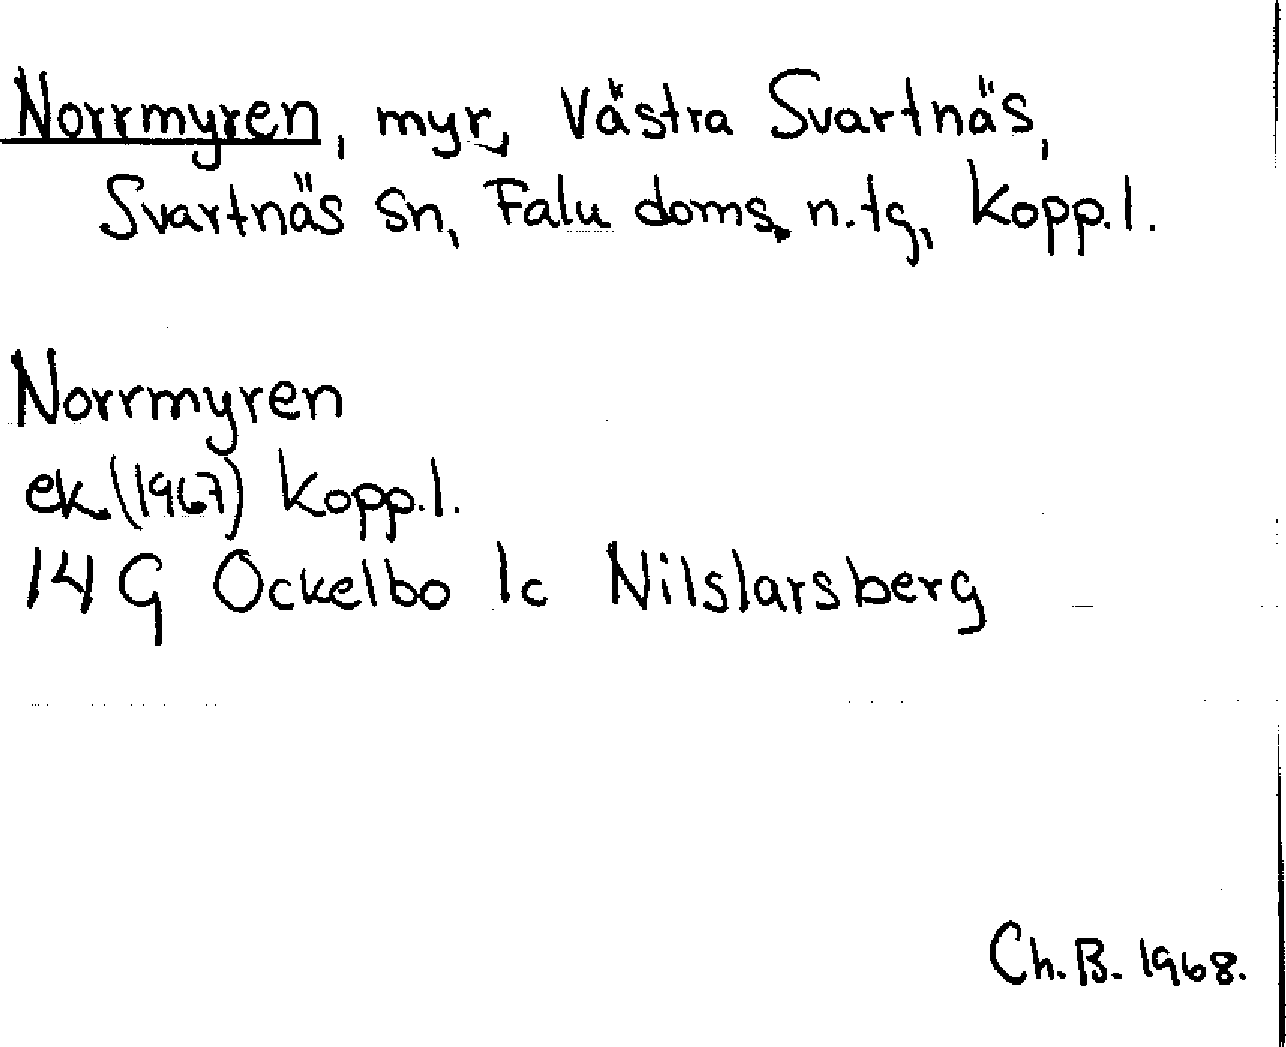 Norrmyren, myr, Västra Svartnäs,
Svartnäs sn, Falu doms. n. tg, Kopp. l.
Norrmyren
ek (1967) Kopp. l.
14 G Ockelbo 1c Nilslarsberg
Ch. B. 1968.